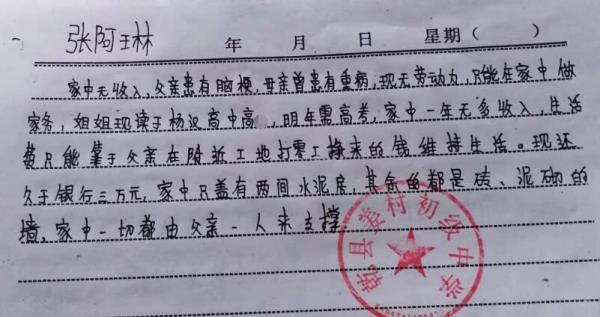 张阿琳
年 月 日 星期（ ）
家中无收入，父亲患有脑梗，母亲曾患有重病，现无劳动力，只能在家中做
家务，姐姐现读于杨汉高中高，明年需高考，家中一年无多收入，生活
费只能靠于父亲在附近工地打零工挣来的钱维持生活。现还
欠于银行三万元，家中只盖有两间水泥房，其余的都是砖、泥砌的
墙，家中一切都由父亲一人来支撑
乾县姜村初级中学